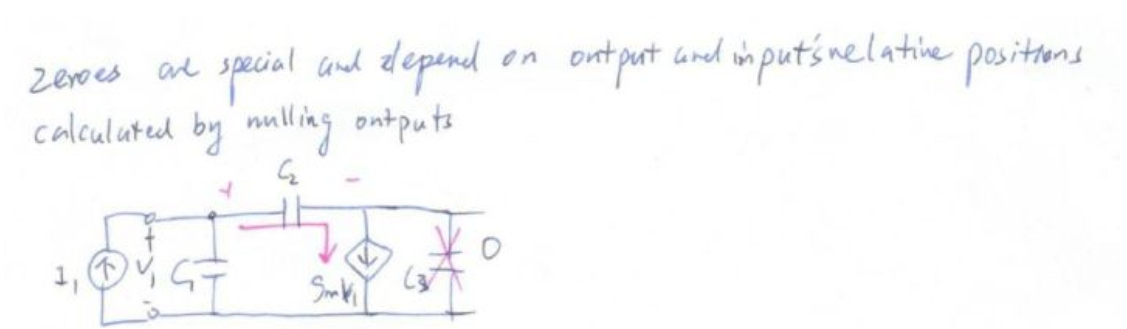 zeroes are special and depend on output and input's relative positions
calculated by nulling outputs
C2
+ -
I1 + V1 - C1 gmV1 C3 0